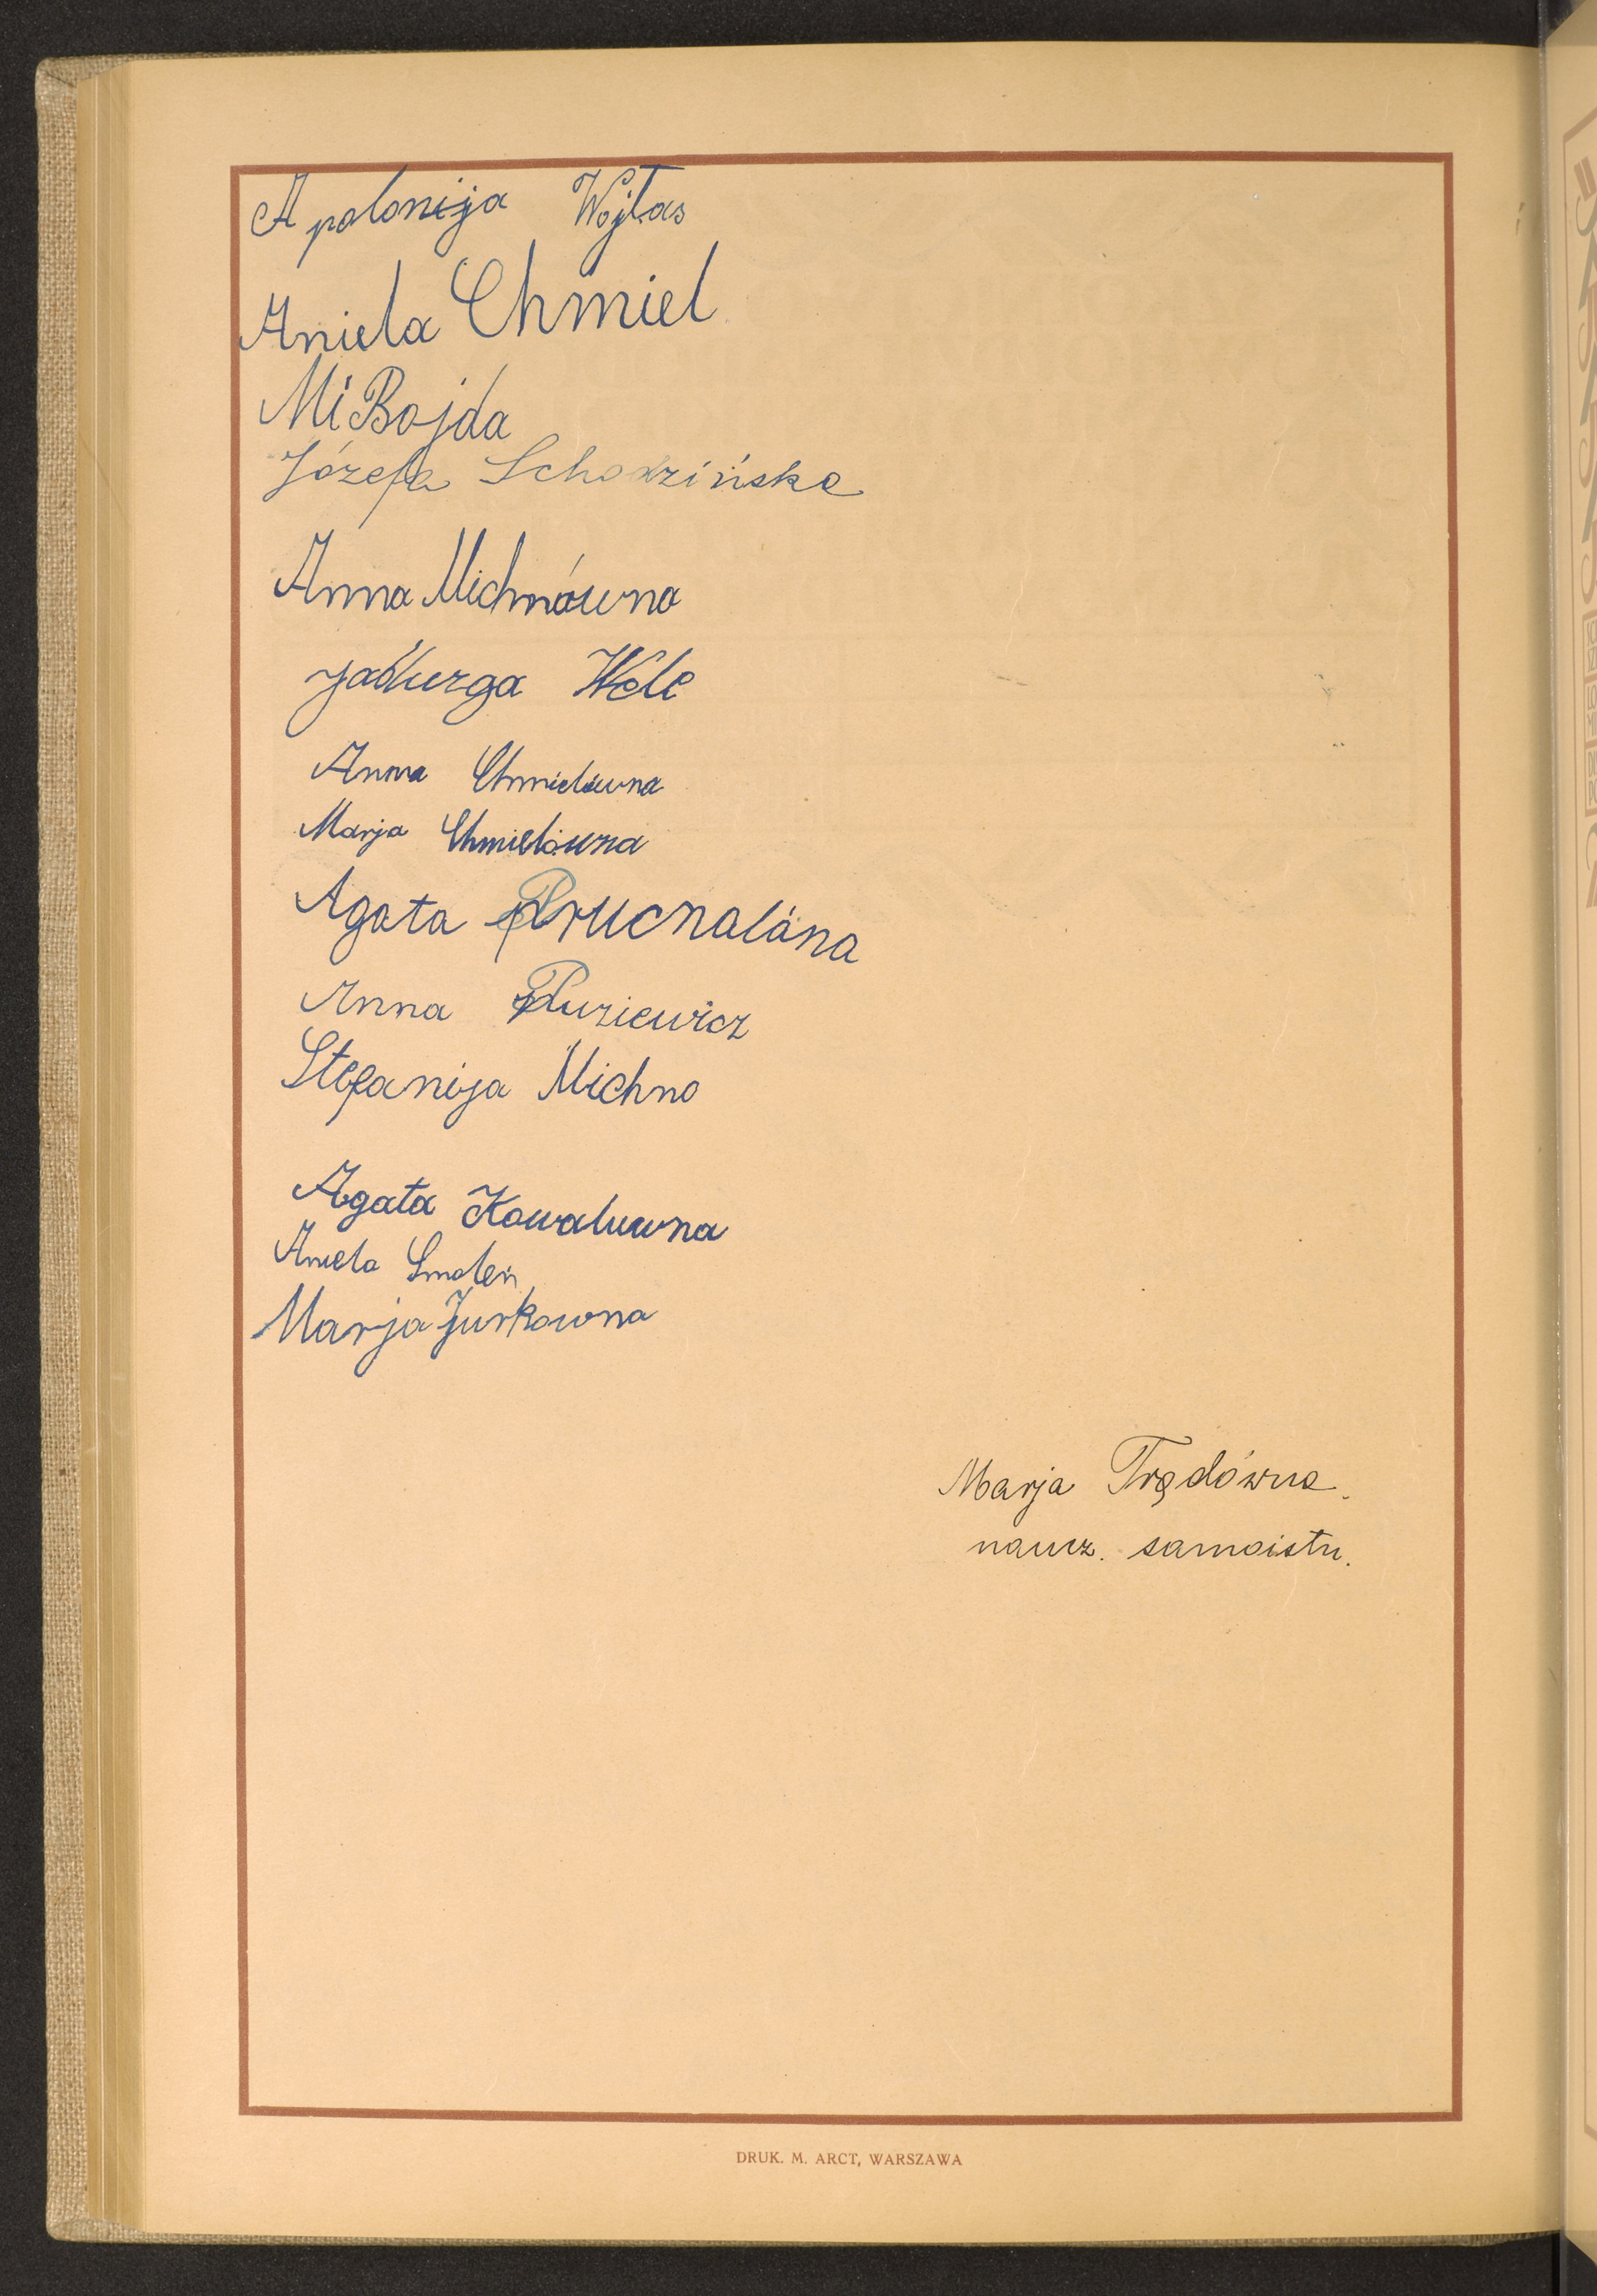 Apolonija Wojtas
Aniela Chmiel
Mi Bojda
Józefa Schodzińska
Anna Michnówna
Jadwiga Wele
Anna Chmielówna
Marja Chmielówna
Agata Prucnalána
Anna Puziewicz
Stefanija Michno
Agata Kowaluwna
Aniela Smoleń
Marja Jurkowna
Marja Trędówna.
naucz. samoistn.
DRUK. M. ARCT, WARSZAWA